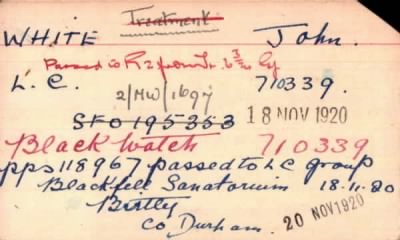 Treatment
WHITE John.
Passed to R2 from
L.C. 710339.
2/MW/1697
SFO 195353 18 NOV 1920
Black Watch 710339
pps 118967 passed to LC group
Blackfell Sanatorium 18-11-20
Birtley
Co Durham. 20 NOV 1920